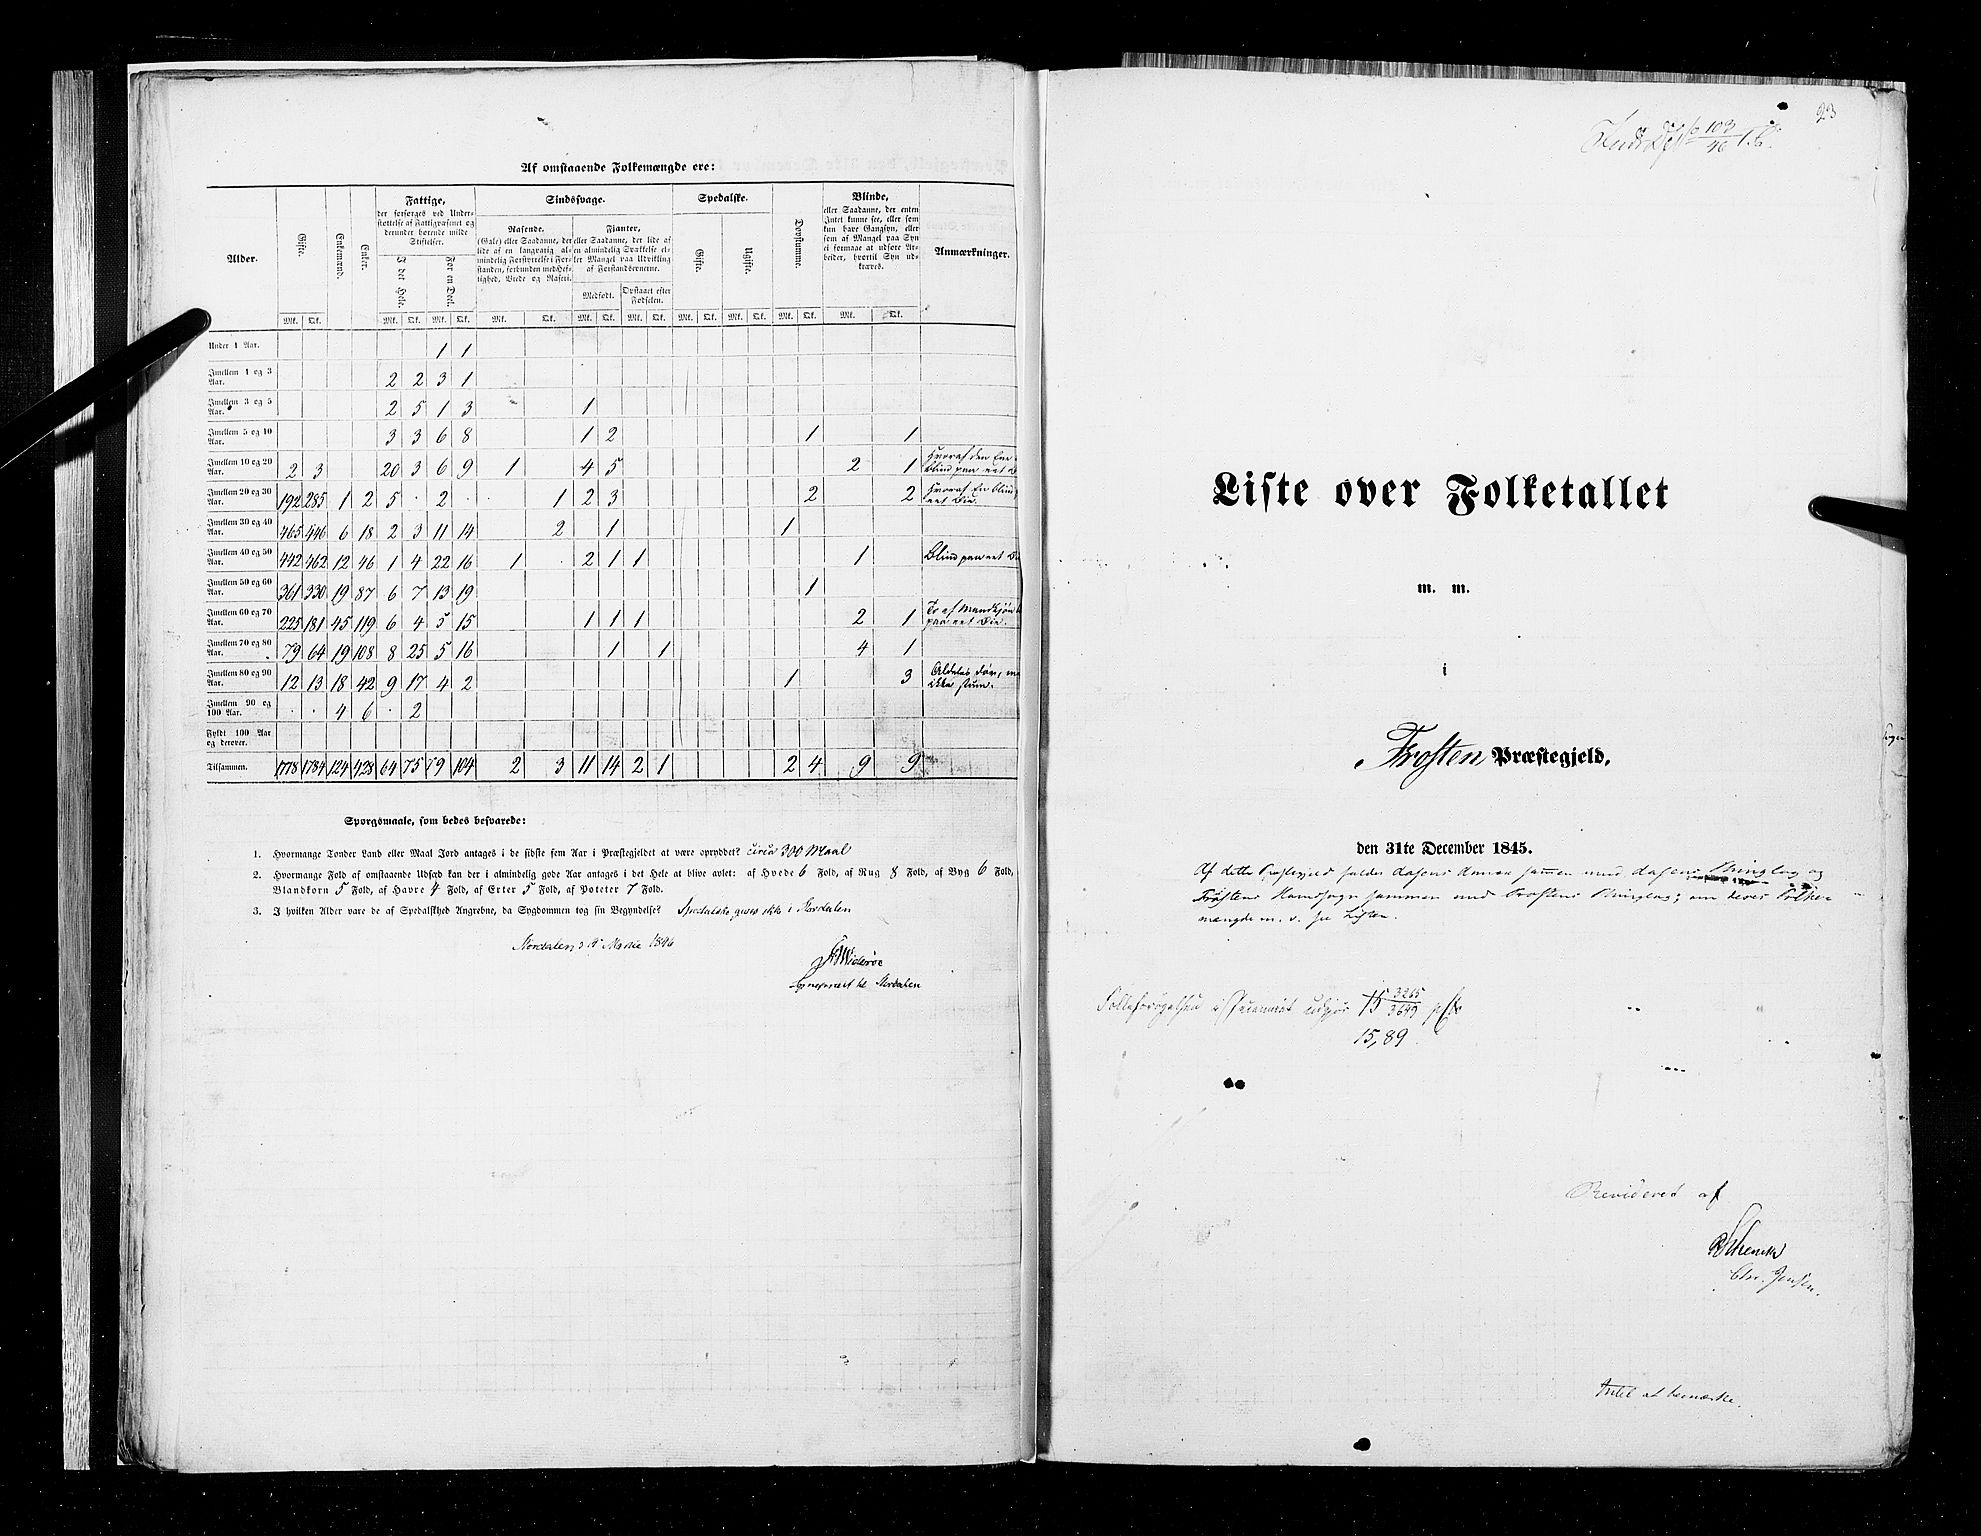 Af omstaaende Folkemængde ere:
Alder. Gifte. Enkemænd. Enker. Fattige, der forsørges ved Understøttelse af Fattigvæsenet og derunder hørende milde Stiftelser. Sindssvage. Spedalske. Døvstumme. Blinde, eller Saadanne, der enten Intet kunne see, eller som kun have Gangsyn, eller som af Mangel paa Syn ei formaae at udføre Arbeider, hvortil Syn udkræves. Anmærkninger.
I det Hele. For en Deel. Rasende. (Gale) eller Saadanne, der lide af en langvarig almindelig Forstyrrelse i Forstanden, forbunden med Heftighed, Vrede og Raseri. Fianter, eller Saadanne, der lide af en almindelig Svækkelse eller Mangel paa Udvikling af Forstandsevnerne. Gifte. Ugifte.
Medfødt. Opstaaet efter Fødselen.
Mk. Qk. Mk. Qk. Mk. Qk. Mk. Qk. Mk. Qk. Mk. Qk. Mk. Qk. Mk. Qk. Mk. Qk. Mk. Qk.
Under 1 Aar. 1 1
Imellem 1 og 3 Aar. 2 2 3 1
Imellem 3 og 5 Aar. 2 5 1 3 1
Imellem 5 og 10 Aar. 3 3 6 8 1 2 1 1
Imellem 10 og 20 Aar. 2 3 20 3 6 9 1 4 5 2 1 Hvoraf den Ene blind paa eet
Imellem 20 og 30 Aar. 192 285 1 2 5 . 2 . 1 2 3 2 2 Hvoraf En blind eet Øie.
Imellem 30 og 40 Aar. 465 446 6 18 2 3 11 14 2 1 1
Imellem 40 og 50 Aar. 442 462 12 46 1 4 22 16 1 . 2 1 1 1 Blind paa eet
Imellem 50 og 60 Aar. 361 330 19 87 6 7 13 19 1
Imellem 60 og 70 Aar. 225 181 45 119 6 4 5 15 1 1 1 2 1 To af Mandkjøn paa eet Øie.
Imellem 70 og 80 Aar. 79 64 19 108 8 25 5 16 1 1 4 1
Imellem 80 og 90 Aar. 12 13 18 42 9 17 4 2 1 3 Aldeles døv, ikke stum.
Imellem 90 og 100 Aar. . . 4 6 . 2
Fyldt 100 Aar og derover.
Tilsammen. 1778 1784 124 428 64 75 79 104 2 3 11 14 2 1 2 4 9 9
Spørgsmaale, som bedes besvarede:
1. Hvormange Tønder Land eller Maal Jord antages i de sidste fem Aar i Præstegjeldet at være opryddet? circa 300 Maal
2. Hvormange Fold af omstaaende Udsæd kan der i almindelig gode Aar antages i det Hele at blive avlet: af Hvede 6 Fold, af Rug 8 Fold, af Byg 6 Fold,
Blandkorn 5 Fold, af Havre 4 Fold, af Erter 5 Fold, af Poteter 7 Fold.
3. I hvilken Alder vare de af Spedalskhed Angrebne, da Sygdommen tog sin Begyndelse? Spedalske gives ikke i Stordalen
Stordalen 1846
Widerøe
Sognepræst til Stordalen
23
103
46
Liste over Folketallet
m. m.
i
Frosten Præstegjeld,
den 31te December 1845.
Af dette Præstegjeld Aasens Annex sammen med Aasens Thinglag og
Frostens Hovedsogn sammen med Frostens Thinglag; om deres Folke-
mængde m. v. see Listen.
Folkeforøgelsen i Decenniet udgjør 15 3265/3649 pCt.
15,89
Revideret af
Chr. Jensen.
Intet at bemærke.